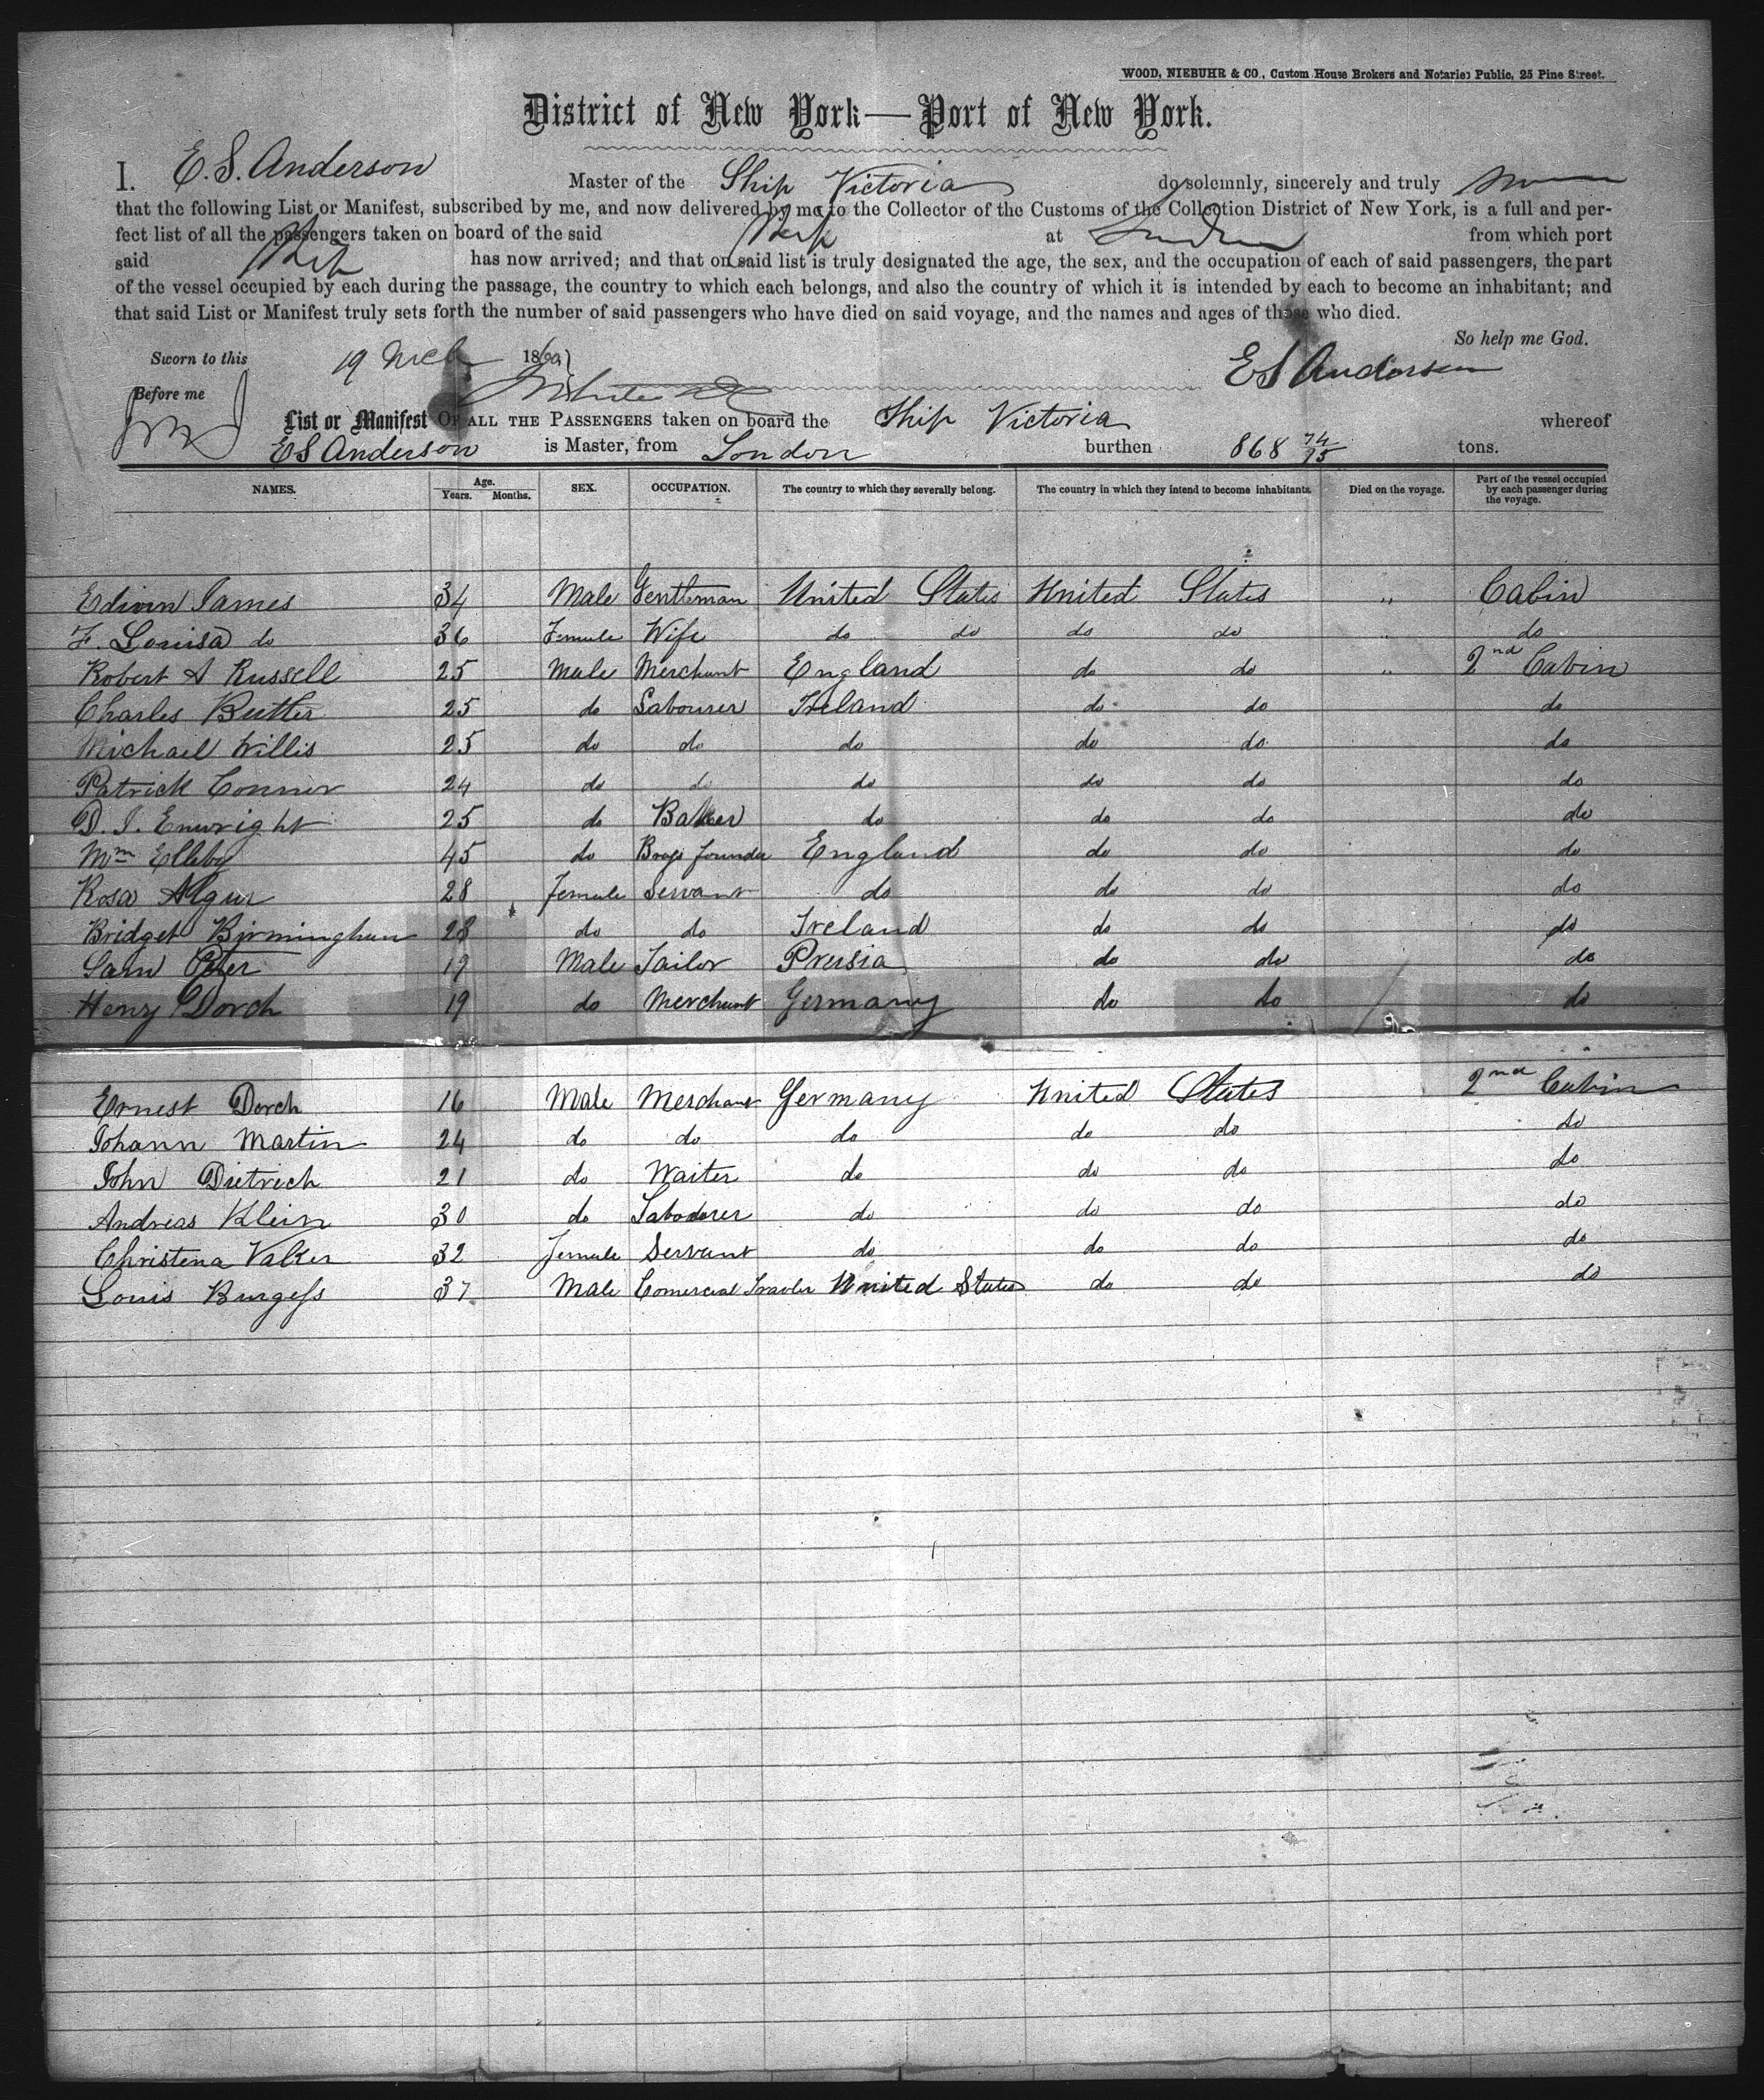 WOOD, NIEBUHR & CO., Custom House Brokers and Notaries Public, 25 Pine Street.
District of New York—Port of New York.
I. E. S. Anderson Master of the Ship Victoria do solemnly, sincerely and truly
that the following List or Manifest, subscribed by me, and now delivered by me to the Collector of the Customs of the Collection District of New York, is a full and per-
fect list of all the passengers taken on board of the said at London from which port
said has now arrived; and that on said list is truly designated the age, the sex, and the occupation of each of said passengers, the part
of the vessel occupied by each during the passage, the country to which each belongs, and also the country of which it is intended by each to become an inhabitant; and
that said List or Manifest truly sets forth the number of said passengers who have died on said voyage, and the names and ages of those who died.
So help me God.
Sworn to this 19 Mch 1860 E S Anderson
Before me
List or Manifest OF ALL THE PASSENGERS taken on board the Ship Victoria whereof
E S Anderson is Master, from London burthen 868 74/95 tons.
NAMES. Age. Years. Months. SEX. OCCUPATION. The country to which they severally belong. The country in which they intend to become inhabitants. Died on the voyage. Part of the vessel occupied by each passenger during the voyage.
Edwin James 34 Male Gentleman United States United States " Cabin
F. Louisa do 36 Female Wife do do do do do
Robert A Russell 25 Male Merchant England do do " 2nd Cabin
Charles Butler 25 do Labourer Ireland do do do
Michael Willis 25 do do do do do do
Patrick Connor 24 do do do do do do
D. J. Enwright 25 do Baker do do do do
Wm Elleby 45 do Brass founder England do do do
Rosa Algur 28 Female Servant do do do do
Bridget Birmingham 28 do do Ireland do do do
Sam Peter 19 Male Tailor Prusia do do do
Henry Dorch 19 do Merchant Germany do do do
Ernest Dorch 16 Male Merchant Germany United States 2nd Cabin
Johann Martin 24 do do do do do do
John Dietrich 21 do Waiter do do do do
Andreas Klein 30 do Labourer do do do do
Christena Valker 32 Female Servant do do do do
Louis Burgess 37 Male Comercial Travler United States do do do